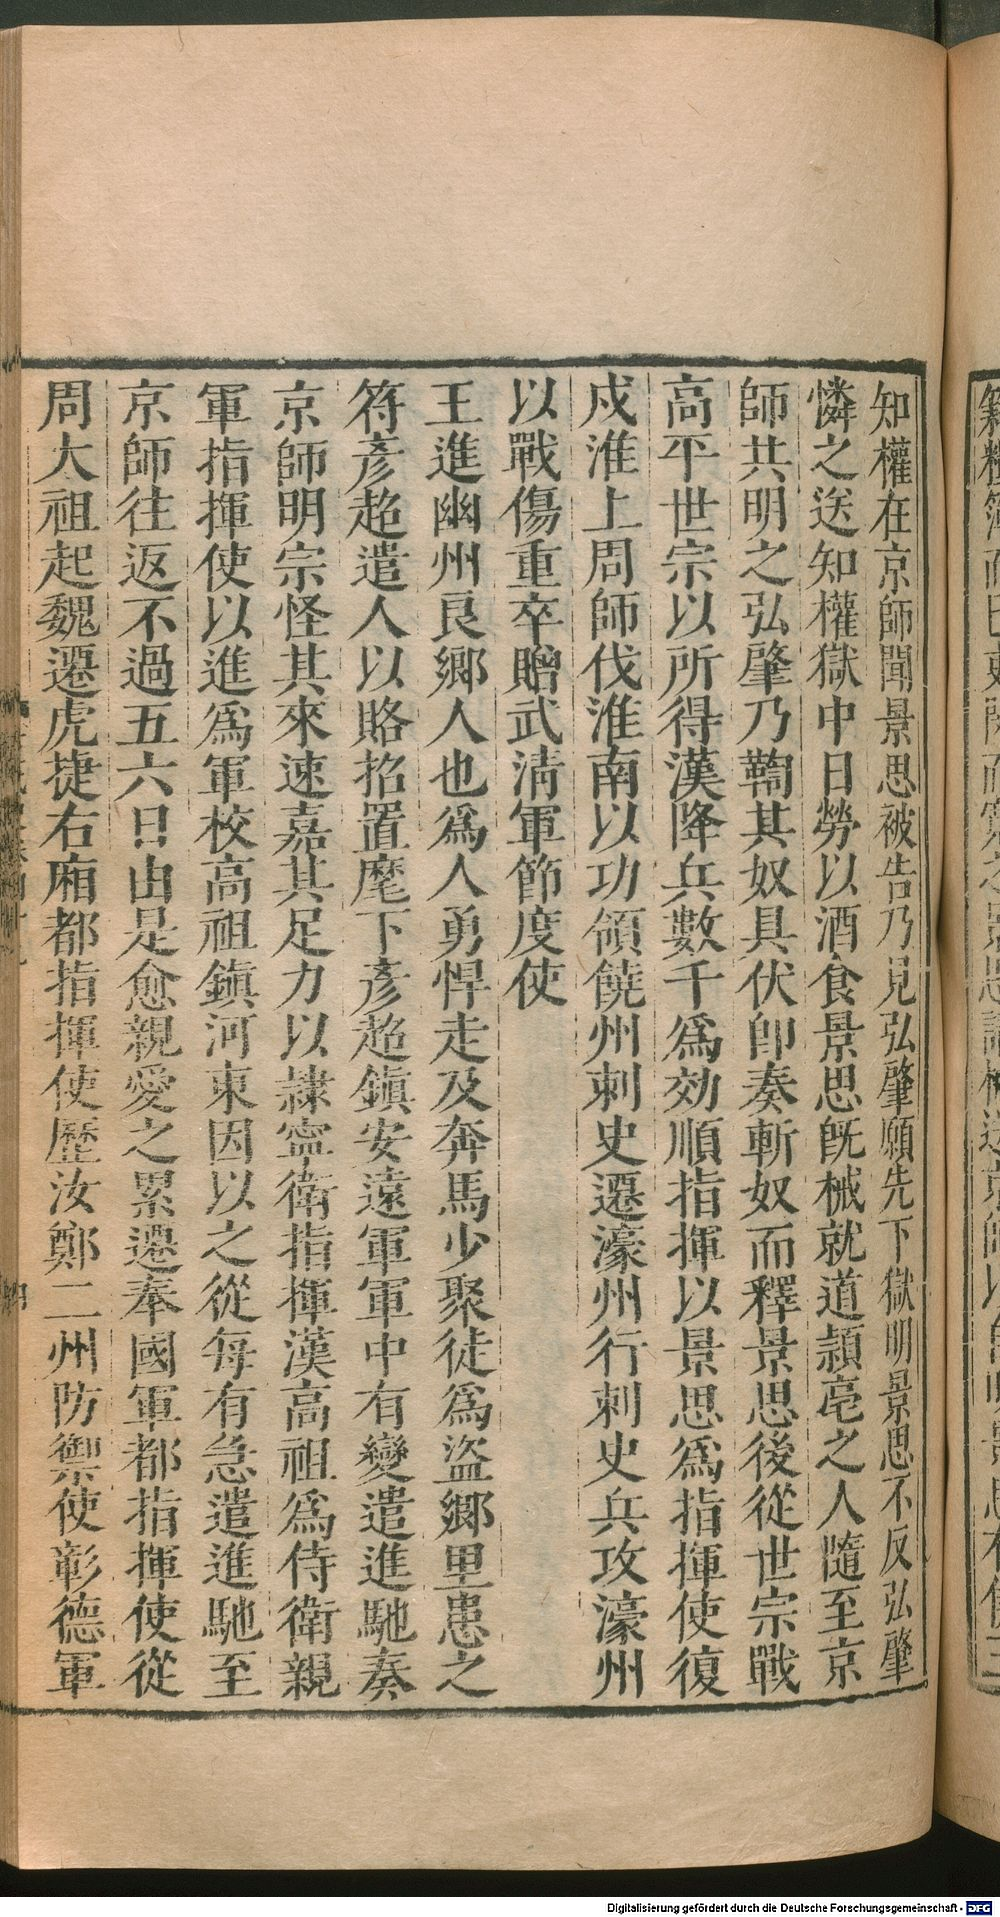 知權在京師聞景思被告乃見弘肇願先下獄明景思不反弘肇
憐之送知權獄中日勞以酒食景思旣械就道潁亳之人隨至京
師共明之弘肇乃鞫其奴具伏卽奏斬奴而釋景思後從世宗戰
高平世宗以所得漢降兵數千爲効順指揮以景思爲指揮使復
戍淮上周師伐淮南以功領饒州刺史遷濠州行刺史兵攻濠州
以戰傷重卒贈武淸軍節度使
王進幽州良鄉人也爲人勇悍走及奔馬少聚徒爲盜鄉里患之
符彥超遣人以賂招置麾下彥超鎭安遠軍軍中有變遣進馳奏
京師明宗怪其來速嘉其足力以隸寧衛指揮漢高祖爲侍衛親
軍指揮使以進爲軍校高祖鎭河東因以之從每有急遣進馳至
京師往返不過五六日由是愈親愛之累遷奉國軍都指揮使從
周太祖起魏遷虎捷右廂都指揮使歷汝鄭二州防禦使彰德軍
Digitalisierung gefördert durch die Deutsche Forschungsgemeinschaft - DFG